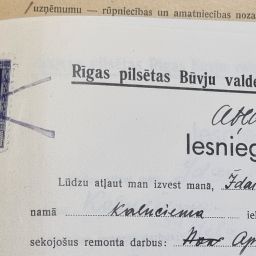 uzņēmumu — rūpniecības un amatniecības noza
Rīgas pilsētas Būvju valde
Iesnieg
Lūdzu atļaut man izvest manā,
namā Kalnciema ie
sekojošus remonta darbus: